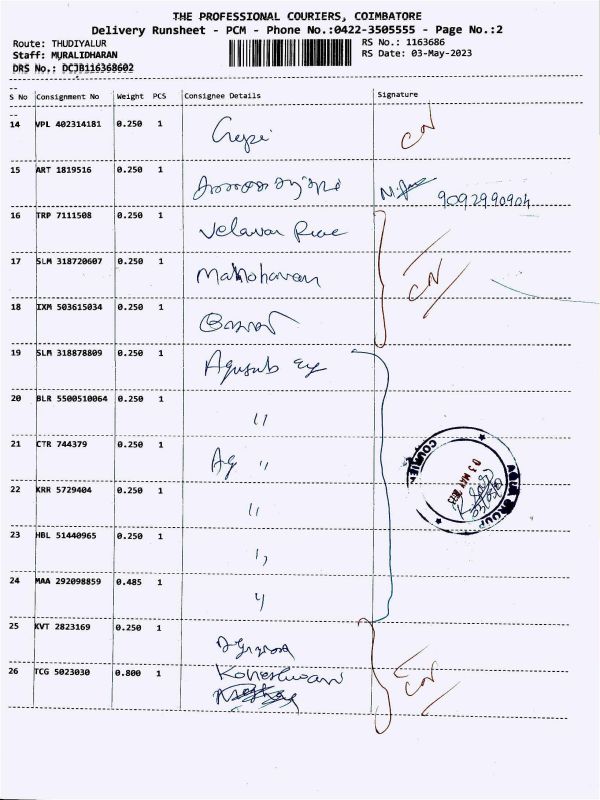 THE PROFESSIONAL COURIERS, COIMBATORE
Delivery Runsheet - PCM - Phone No.:0422-3505555 - Page No.:2
Route: THUDIYALUR
RS No.: 1163686
Staff: MURALIDHARAN
RS Date: 03-May-2023
DRS No.: DCJB116368602
--
S No Consignment No Weight PCS Consignee Details Signature
--
14 VPL 402314181 0.250 1 CN
15 ART 1819516 0.250 1 9092990904
16 TRP 7111508 0.250 1 Velavan
17 SLM 318720607 0.250 1 Manoharan CN
18 IXM 503615034 0.250 1
19 SLM 318878809 0.250 1
20 BLR 5500510064 0.250 1 "
21 CTR 744379 0.250 1 Aq "
22 KRR 5729404 0.250 1 "
23 HBL 51440965 0.250 1 "
24 MAA 292098859 0.485 1 "
AQUA GROUP
COURIER
03 MAY 2023
25 KVT 2823169 0.250 1
26 TCG 5023030 0.800 1 CN